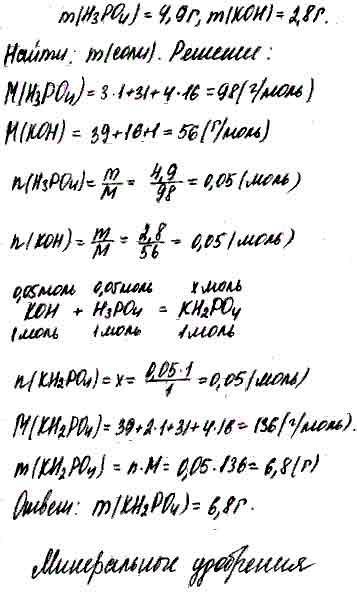 m(H₃PO₄) = 4,9г, m(KOH) = 2,8г.
Найти: m(соли). Решение:
M(H₃PO₄) = 3·1+31+4·16 = 98(г/моль)
M(KOH) = 39+16+1 = 56(г/моль)
n(H₃PO₄) = m/M = 4,9/98 = 0,05(моль)
n(KOH) = m/M = 2,8/56 = 0,05(моль)
0,05моль 0,05моль x моль
KOH + H₃PO₄ = KH₂PO₄
1моль 1моль 1моль
n(KH₂PO₄) = x = 0,05·1/1 = 0,05(моль)
M(KH₂PO₄) = 39+2·1+31+4·16 = 136(г/моль).
m(KH₂PO₄) = n·M = 0,05·136 = 6,8(г)
Ответ: m(KH₂PO₄) = 6,8г.
Минеральные удобрения